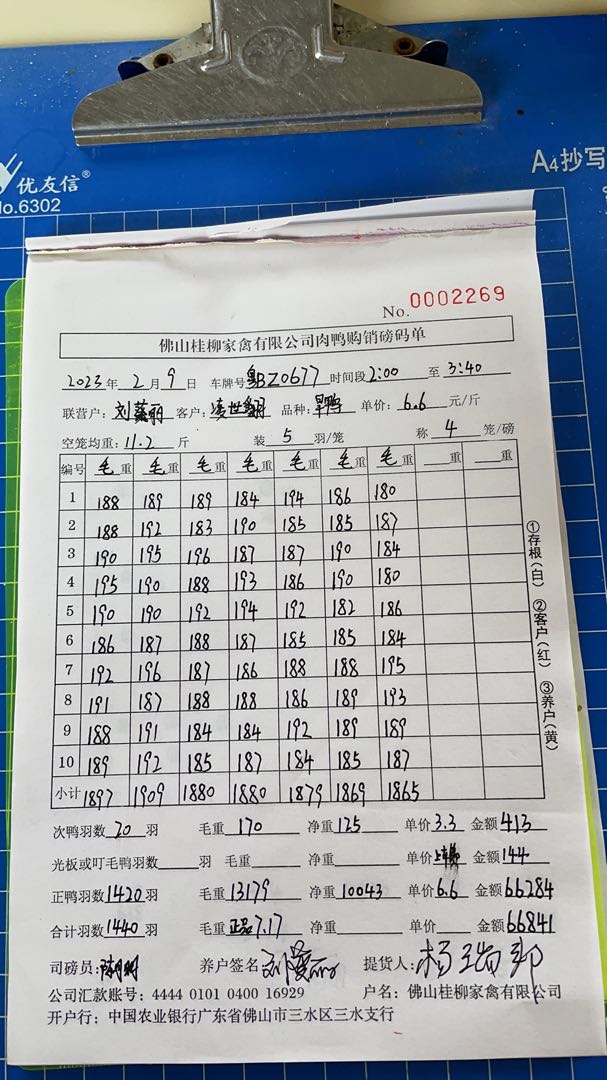 优友信®
No.6302
A4抄写
No. 0002269
佛山桂柳家禽有限公司肉鸭购销磅码单
2023年 2月 9日 车牌号 粤BZ0677 时间段 2:00 至 3:40
联营户: 刘 丽 客户: 凌世 品种: 单价: 6.6 元/斤
空笼均重: 11.2 斤 装 5 羽/笼 称 4 笼/磅
编号 毛重 毛重 毛重 毛重 毛重 毛重 毛重 重 重
1 188 189 189 184 194 186 180
2 188 192 183 190 185 185 187
3 190 195 196 187 187 190 184
4 195 190 188 193 186 190 180
5 190 190 192 194 192 182 186
6 186 187 188 187 185 185 184
7 192 196 187 186 188 188 195
8 191 187 188 188 186 189 193
9 188 191 184 184 192 189 189
10 189 192 185 187 184 185 187
小计 1897 1909 1880 1880 1879 1869 1865
①存根(白) ②客户(红) ③养户(黄)
次鸭羽数 20 羽 毛重 170 净重 125 单价 3.3 金额 413
光板或叮毛鸭羽数 羽 毛重 净重 单价 金额 144
正鸭羽数 1420 羽 毛重 13179 净重 10043 单价 6.6 金额 66284
合计羽数 1440 羽 毛重 正品7.17 净重 单价 金额 66841
司磅员: 养户签名 提货人: 杨
公司汇款账号: 4444 0101 0400 16929 户名: 佛山桂柳家禽有限公司
开户行: 中国农业银行广东省佛山市三水区三水支行